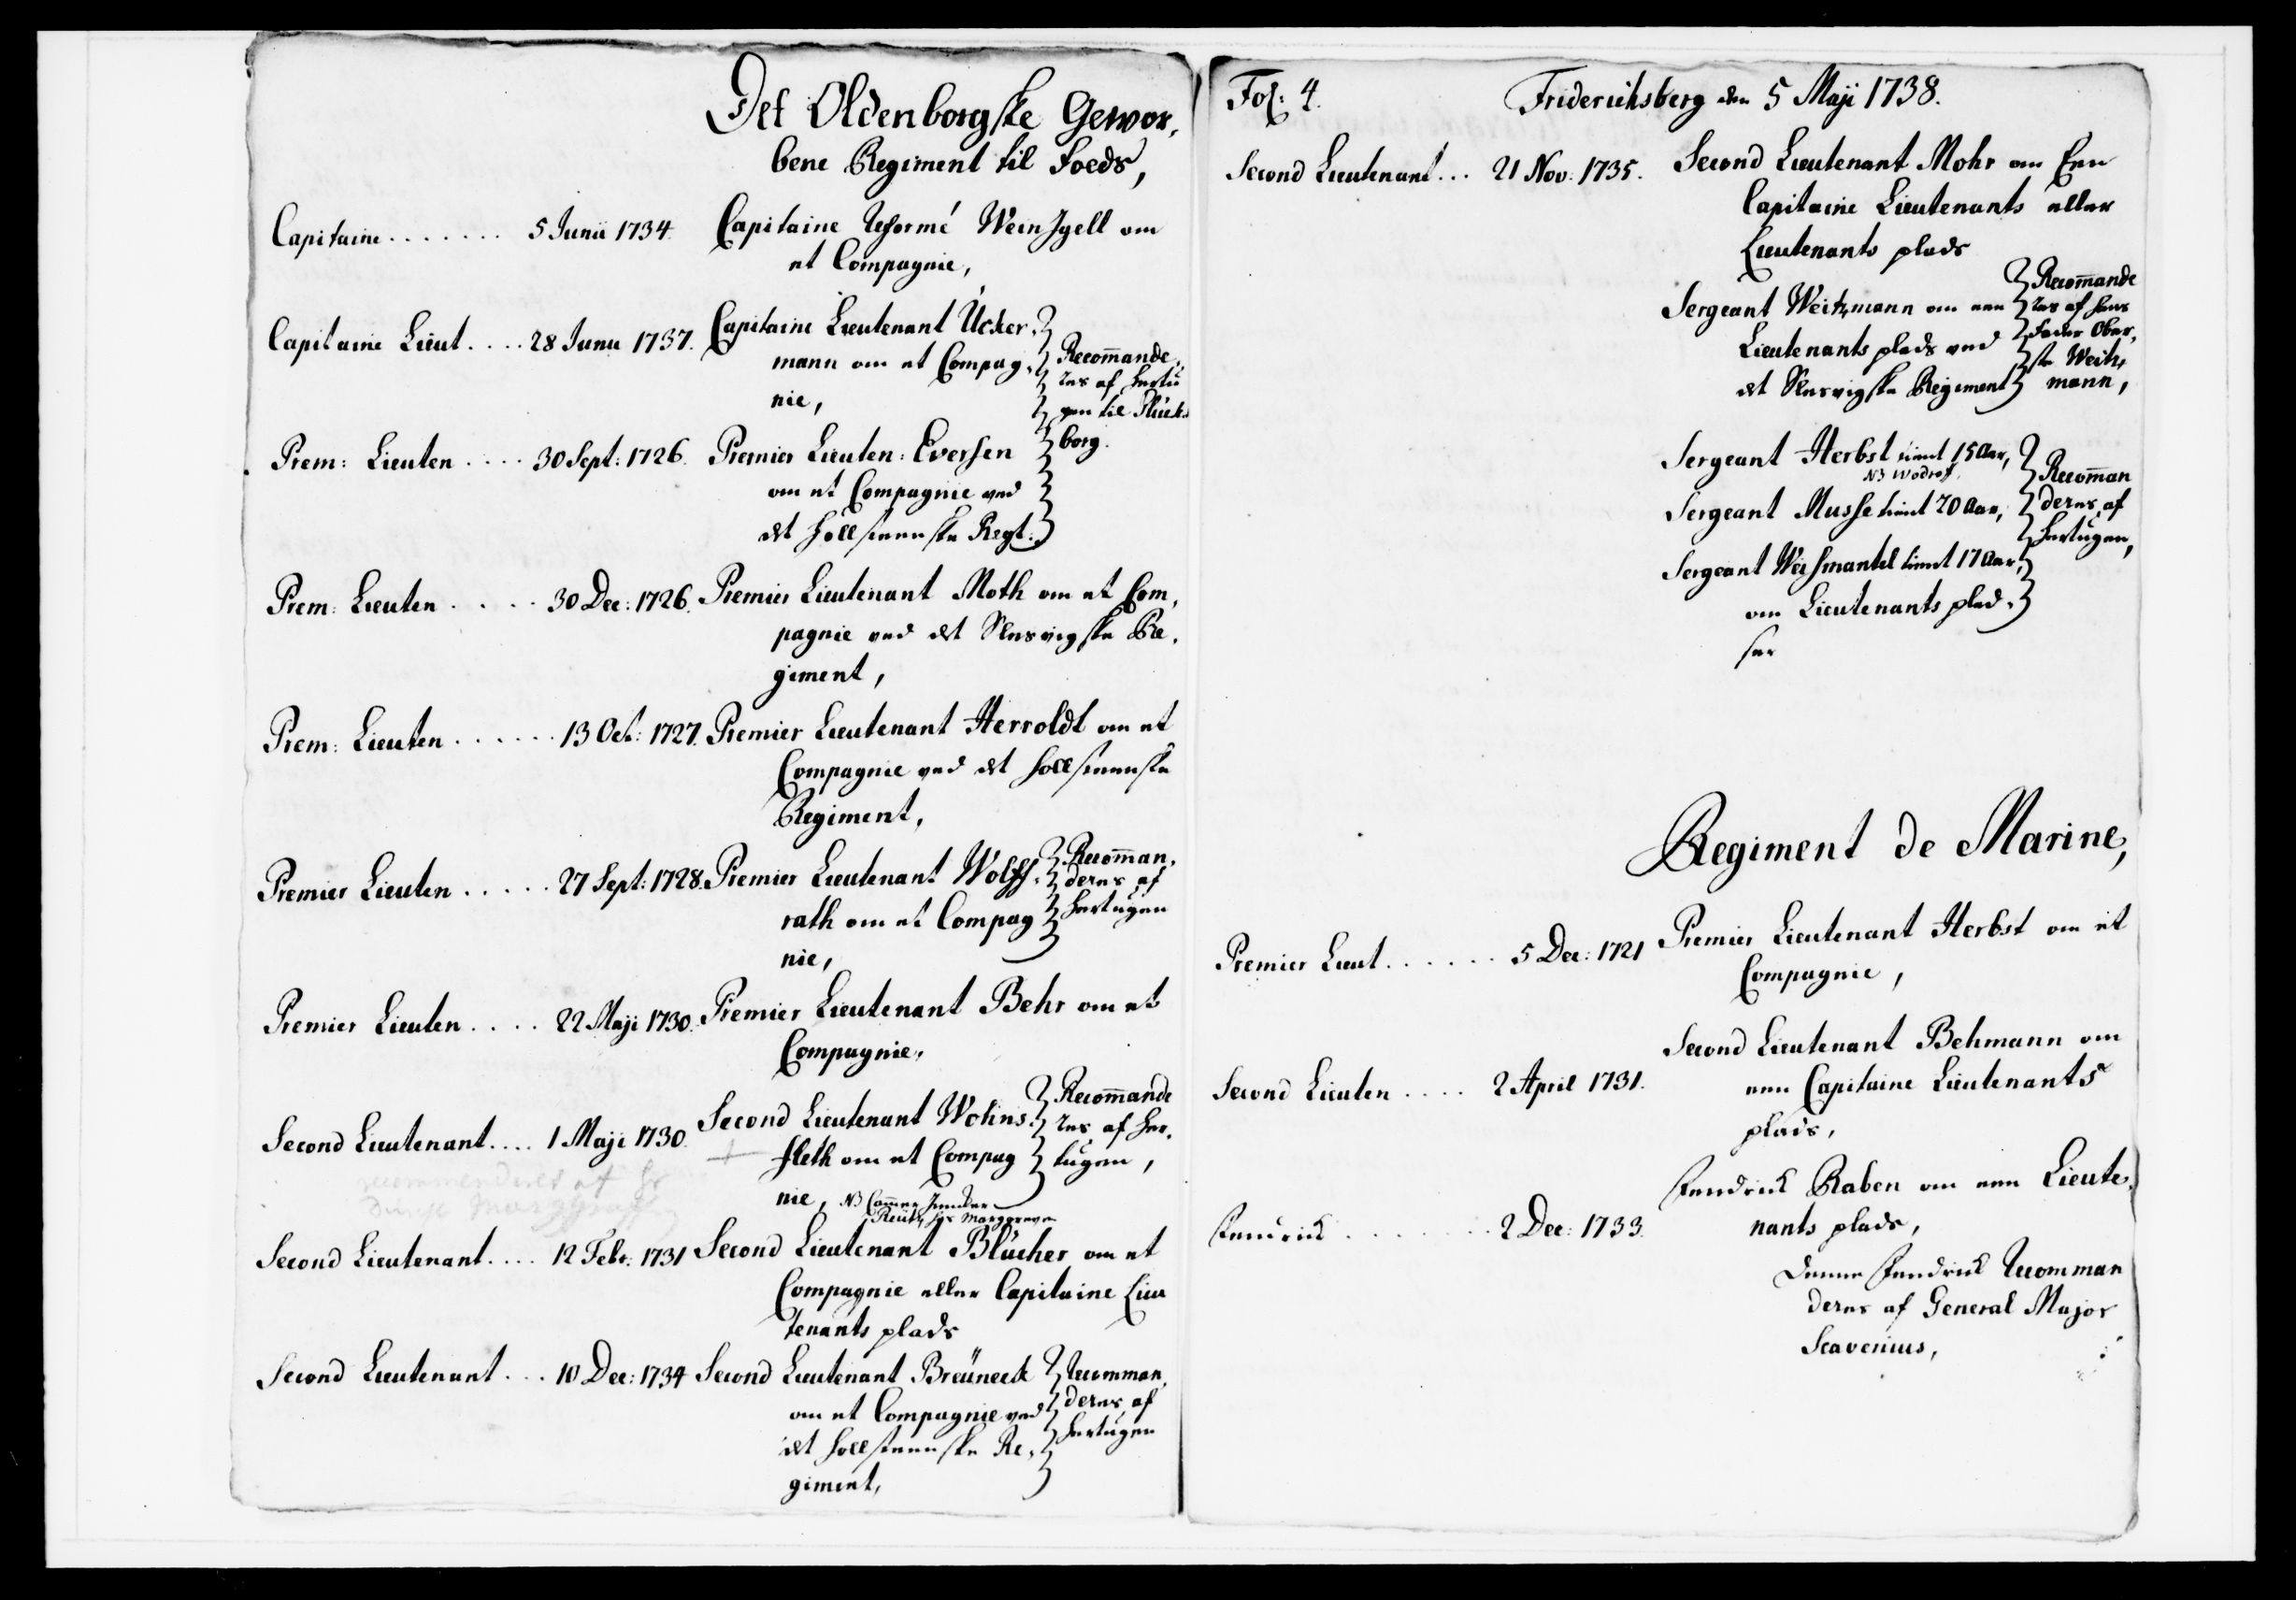 Det Oldenborgske Gewor,
bene Regiment til Foeds,
Capitaine ....... 5 Junii 1734. Capitaine Reformé Wein Jgell om
et Compagnie,
Capitaine Lieut .... 28 Junii 1737. Capitaine Lieutenant Ücker,
mann om et Compag, Recom̄ande,
nie, res af Hertu
gen til Glücks
Prem: Lieuten .... 30 Sept: 1726. Premier Lieuten: Eversen borg.
om et Compagnie ved
det Hollsteenske Regt:
Prem: Lieuten ..... 30 Dec: 1726. Premier Lieutenant Moth om et Com,
pagnie ved det Slesvigske Re,
giment,
Prem: Lieuten ...... 13 Oct: 1727. Premier Lieutenant Herroldt om et
Compagnie ved det Hollsteenske
Regiment,
Premier Lieuten ..... 27 Sept: 1728. Premier Lieutenant Wolff, Recom̄an,
deres af
rath om et Compag Hertugen
nie,
Premier Lieuten .... 22 Maji 1730. Premier Lieutenant Behr om et
Compagnie,
Second Lieutenant .... 1 Maji 1730. Second Lieutenant Wohns, Recom̄ande
res af Her,
+ fleth om et Compag tugen,
recommenderes af
nie, NB Cam̄er Juncker
Marggraf
Second Lieutenant .... 12 Febr: 1731 Second Lieutenant Blücher om et
Compagnie eller Capitaine Lieu
tenants plads
Second Lieutenant ... 10 Dec: 1734 Second Lieutenant Breüneck Recomman,
om et Compagnie ved deres af
det Hollsteenske Re, Hertugen
giment,
Fol: 4. Friderichsberg den 5 Maji 1738.
Second Lieutenant ... 21 Nov: 1735. Second Lieutenant Mohr om Een
Capitaine Lieutenants eller
Lieutenants plads
Sergeant Weitzmann om een Recom̄ande
res af hans
Lieutenants plads ved Fader Ober,
ste Weitz,
det Slesvigske Regiment mann,
Sergeant Herbst tient 15 Aar,
Recom̄an
Sergeant Musse tient 20 Aar, deres af
Hertugen,
Sergeant Weismantel tient 17 Aar,
om Lieutenants plad,
ser
Regiment de Marine,
Premier Lieut ...... 5 Dec: 1721 Premier Lieutenant Herbst om et
Compagnie,
Second Lieuten .... 2 April 1731. Second Lieutenant Behmann om
een Capitaine Lieutenants
plads,
Fendrick ........ 2 Dec: 1733. Fendrick Raben om een Lieute,
nants plads,
Denne Fendrick Recomman
deres af General Major
Scavenius,